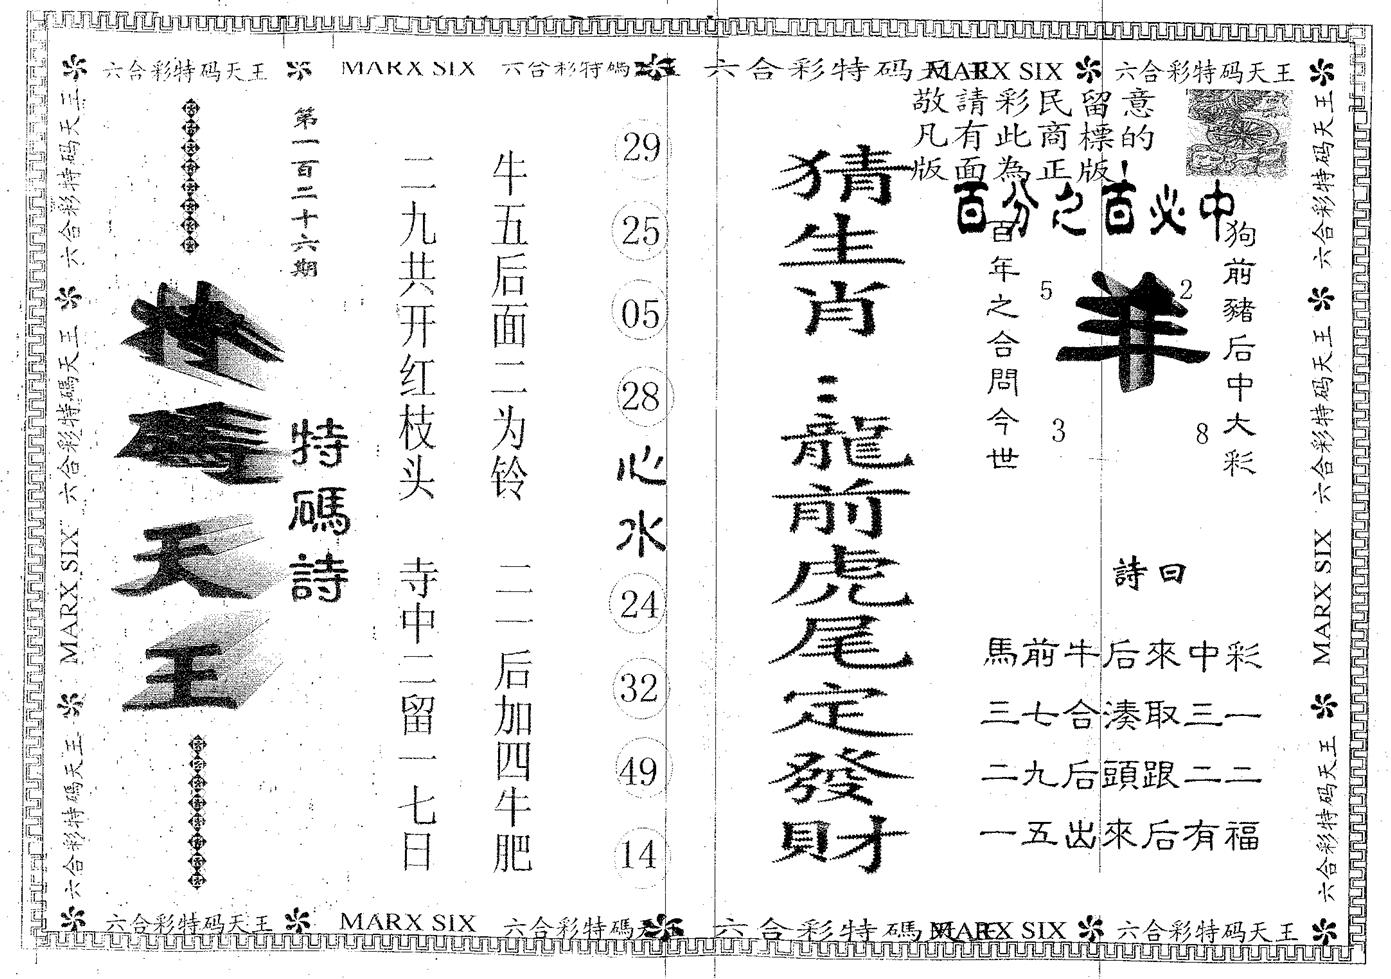 六合彩特码天王 MARX SIX 六合彩特碼天王 六合彩特码天王 MARX SIX 六合彩特码天王
敬請彩民留意
凡有此商標的
版面為正版!
百分之百必中
狗前豬后中大彩
羊
5
2
3
8
百年之合問今世
詩曰
馬前牛后來中彩
三七合湊取三一
二九后頭跟二二
一五出來后有福
猜生肖:龍前虎尾定發財
29
25
05
28
心水
24
32
49
14
牛五后面二为铃
二一后加四牛肥
二九共开红枝头
寺中二留一七日
第一百二十六期
特碼詩
特碼天王
六合彩特码天王
六合彩特碼天王
MARX SIX
六合彩特码天王
六合彩特码天王
六合彩特码天王
MARX SIX
六合彩特码天王
六合彩特码天王 MARX SIX 六合彩特碼天王 六合彩特碼天王 MARX SIX 六合彩特码天王